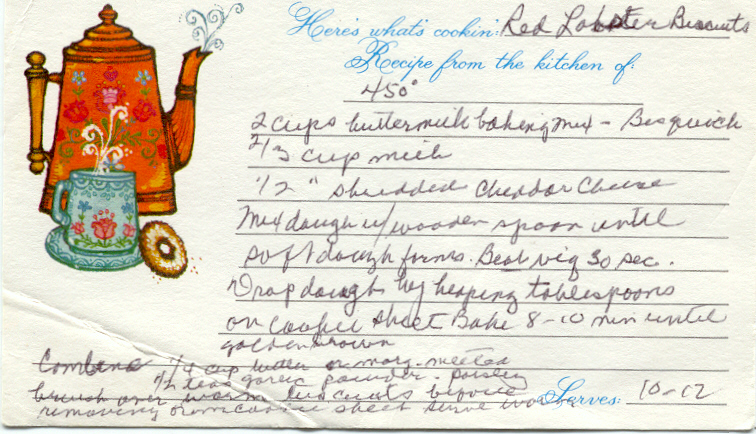 Here's what's cookin': Red Lobster Biscuits
Recipe from the kitchen of:
450°
2 cups buttermilk baking mix - Bisquick
2/3 cup milk
1/2 " shredded Cheddar Cheese
Mix dough w/wooden spoon until
soft dough forms. Beat vig 30 sec.
Drop dough by heaping tablespoons
on cookie sheet Bake 8-10 min until
golden brown
Combine 1/4 cup butter or marg. melted
1/2 teas garlic powder - parsley
brush over warm biscuits before
removing from cookie sheet serve warm
Serves: 10-12